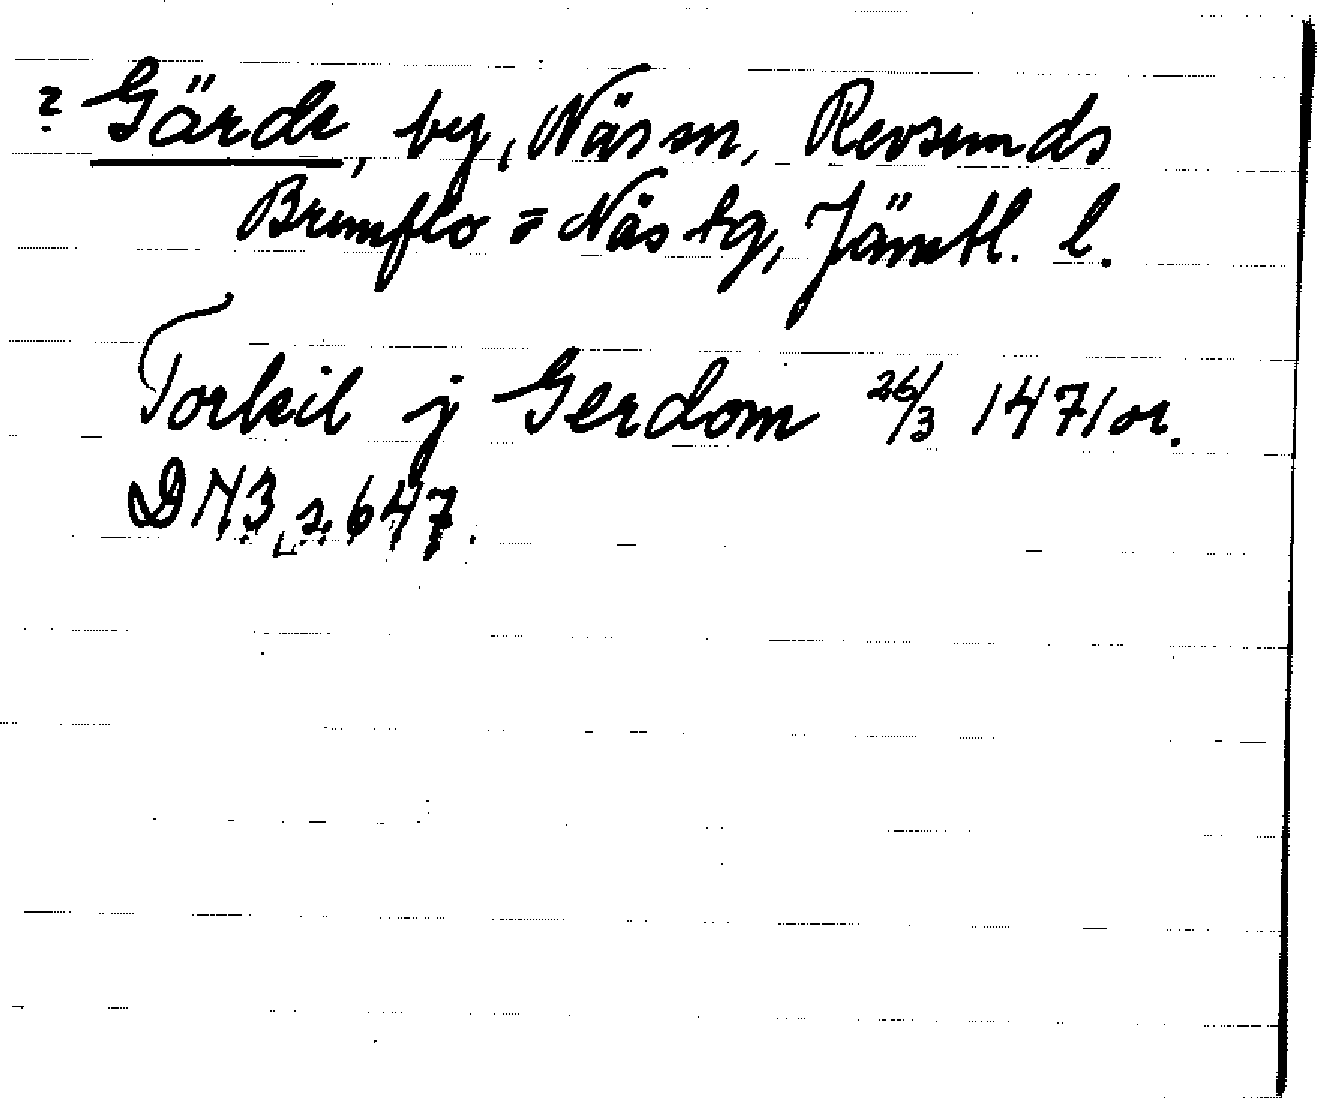 ? Gärde, by, Näs sn, Revsunds
Brunflo o. Näs tg, Jämtl. l.
Torkil j Gerdom 26/3 1471 or.
DN 3, 2, 647.